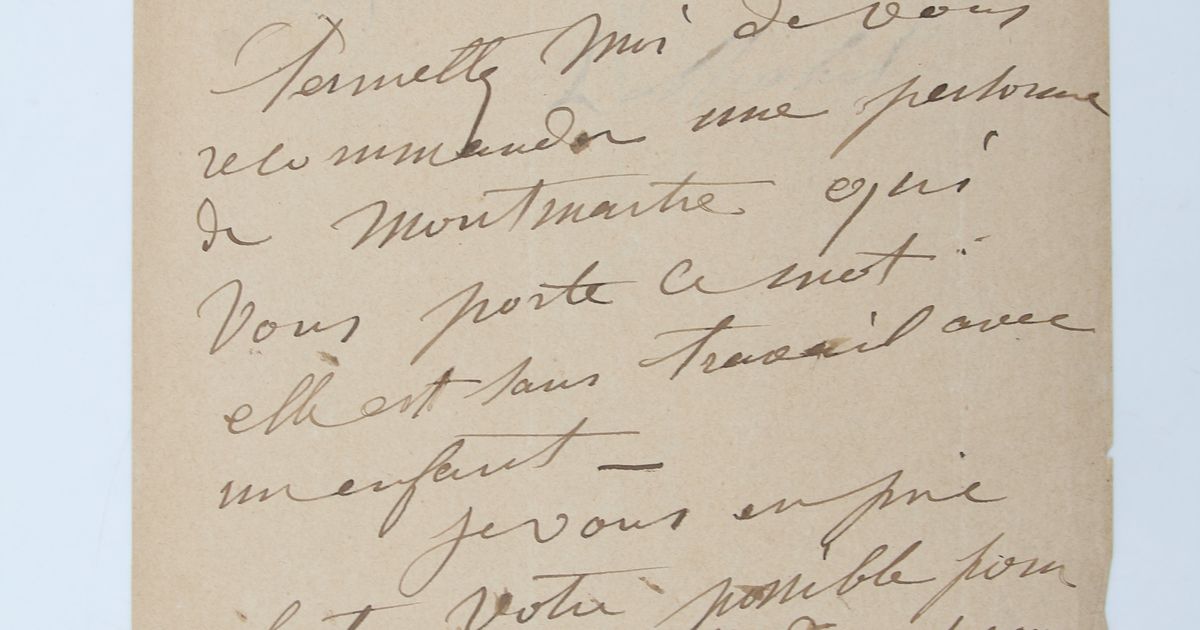 Permettez Moi de vous
recommander une personne
de Montmartre qui
Vous porte ce mot
elle est sans travail avec
un enfant —
je vous en prie
votre possible pour